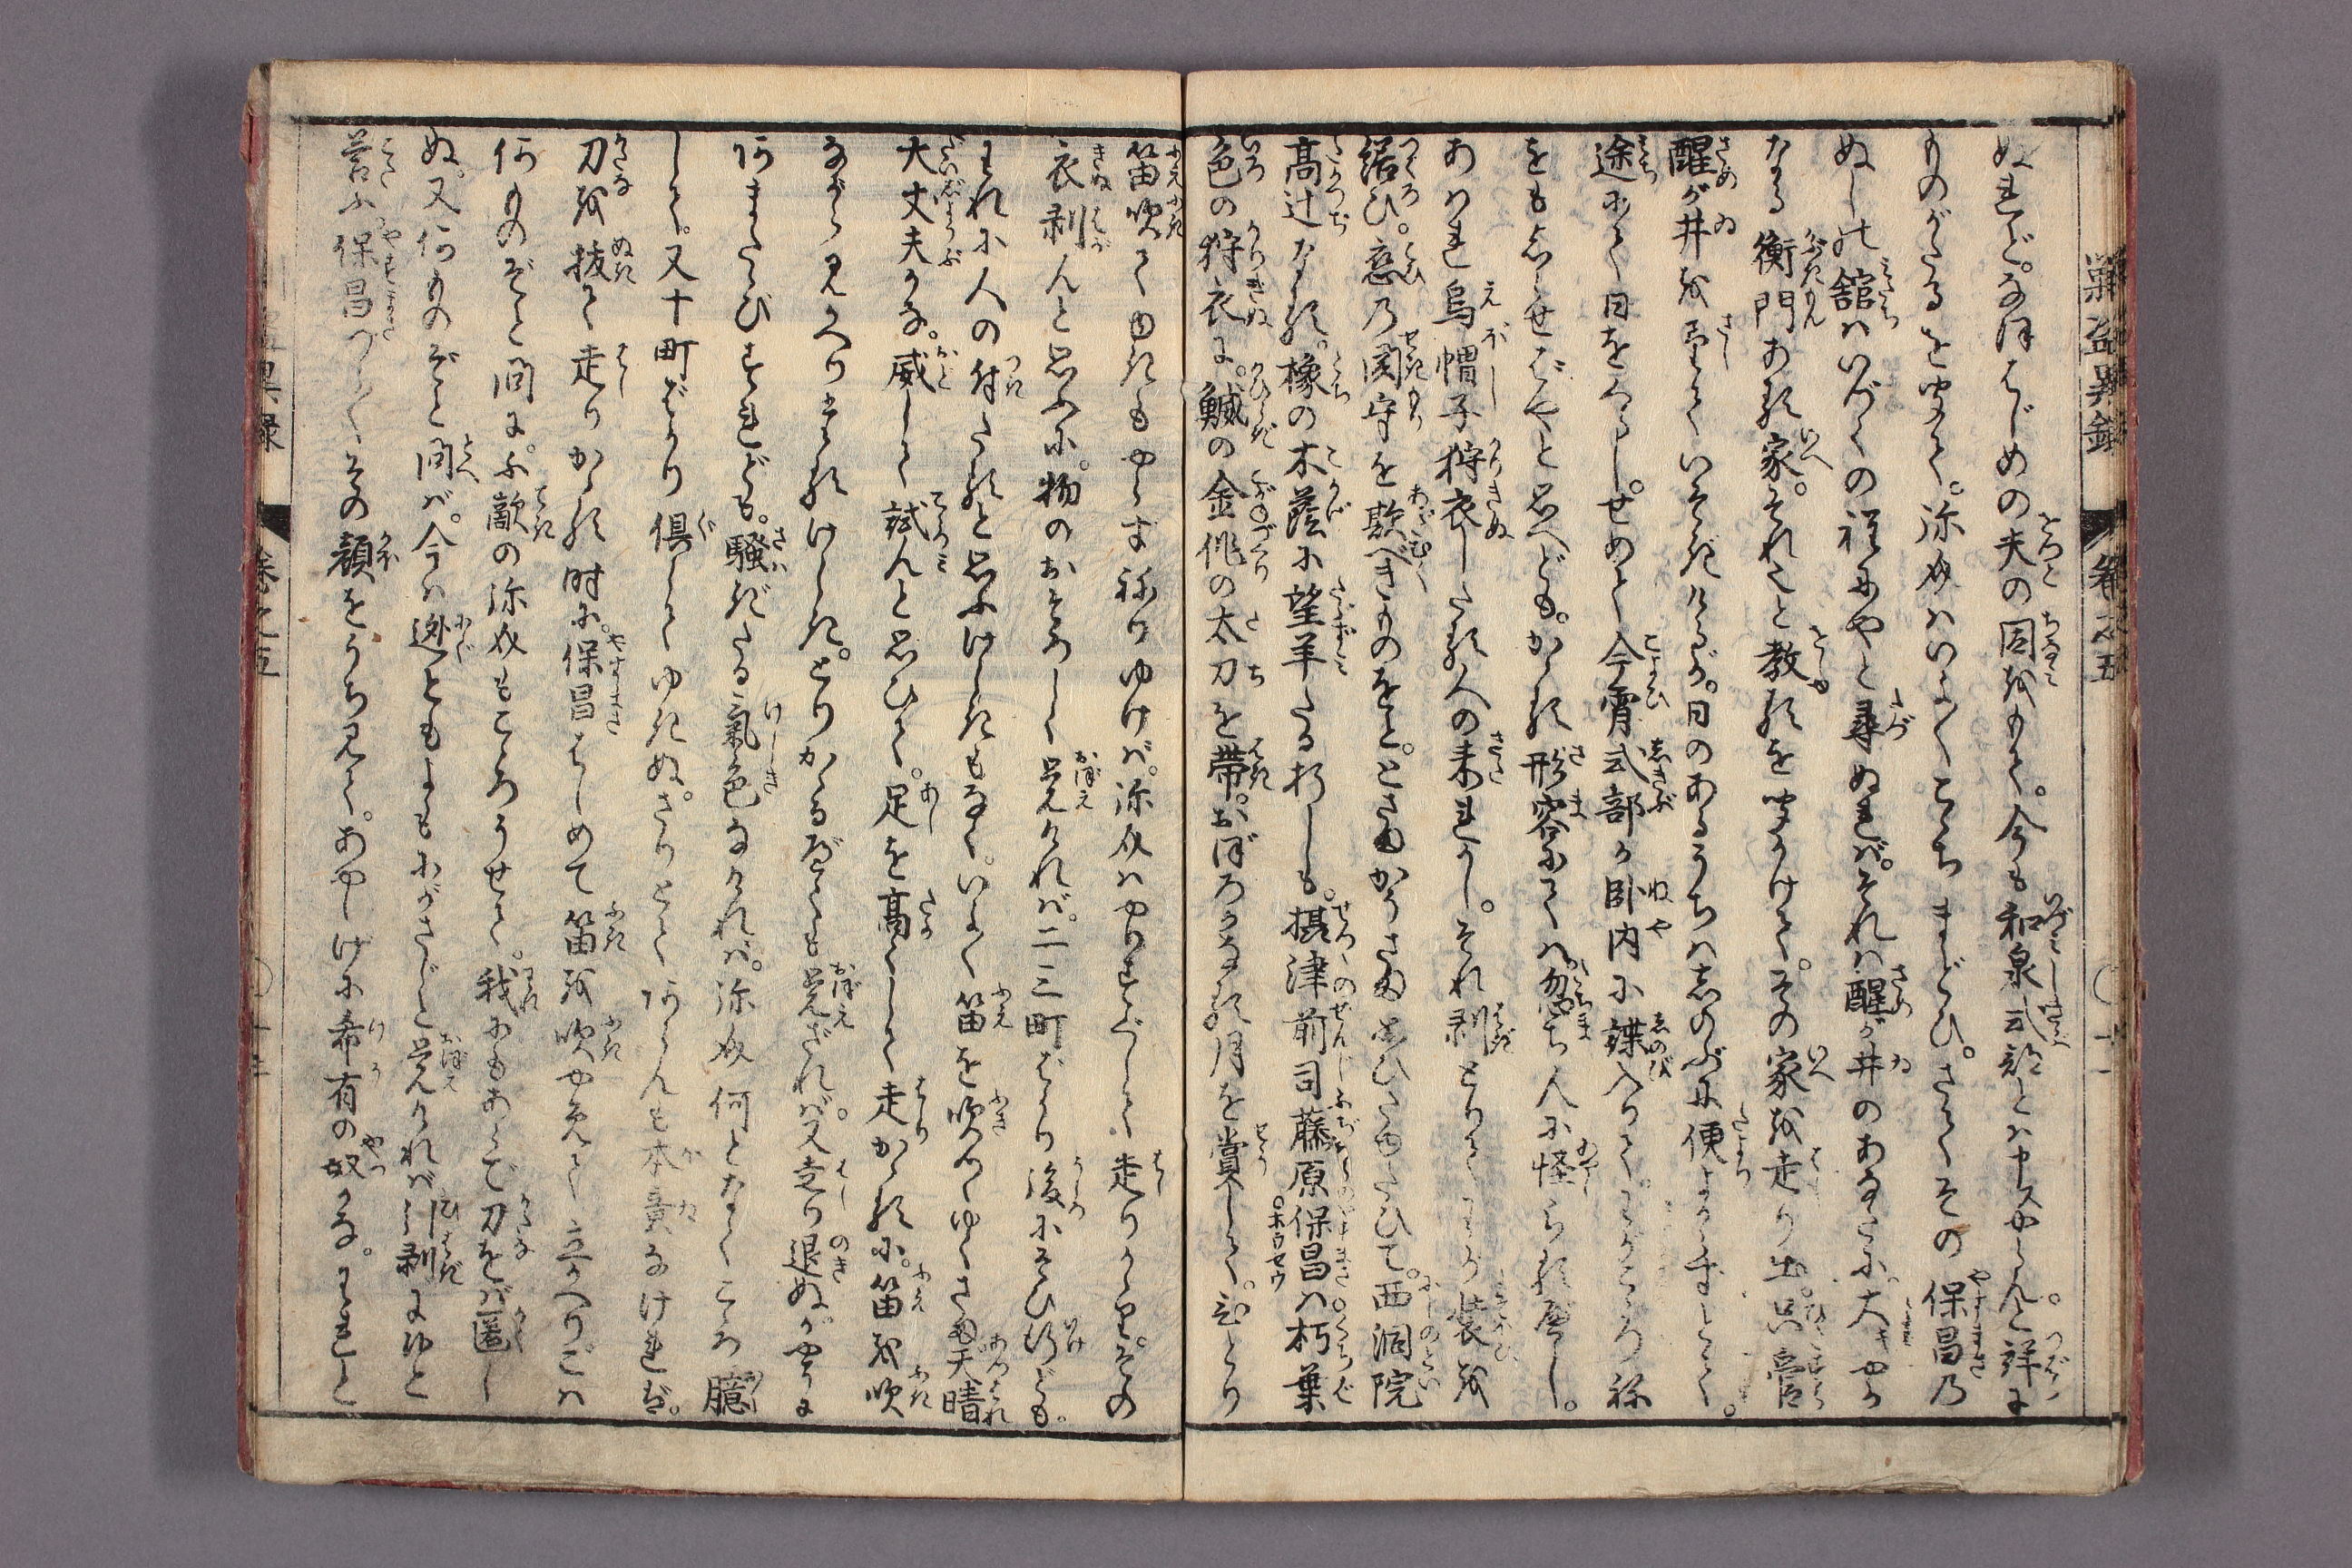 ぬれど。なほはじめの夫の因をもて。今も和泉式部とは申スやらん。と詳に
ものがたるを聞て。弥介はいよ〳〵こゝちまどひ。さてその保昌の
ぬしの舘はいづくの程にやと尋ぬれば。それは醒が井のあなたに。大キやか
なる衡門ある家。それ也と教るを聞つけて。その家を走り出。只管
醒が井をさしていそぎけるが。日のあるうちはしのぶに便よからずとて。
途にて日をくらし。せめて今宵式部が臥内に諜入りて。わがこゝろね
をもしらせばやと思へども。かゝる形容にては。忽ち人に怪らるべし。
あはれ烏帽子狩衣したる人の来れかし。それ剥とりてわが装を
繕ひ。恋の関守を欺べきものをと。とさまかうさま思ひたゆたひて。西洞院
髙辻なる。橡の木蔭に望羊たる折しも。摂津前司藤原保昌は朽葉
色の狩衣に。鰄の金作の太刀を帯。おぼろかなる月を賞して。ひとり
笛吹てゆきもやらずねりゆけば。弥介はやりすぐして走りかゝり。その
衣剥んと思ふに。物のおそろしく覚えければ。二三町ばかり後にそひ行ども。
われに人の付たると思ふけしきもなく。いよ〳〵笛を吹てゆくさま天晴
大丈夫かな。威して試んと思ひて。足を髙くして走かゝるに。笛を吹
ながら見かへりたるけしき。とりかゝるべくも覚ざれば。又走り退ぬ。かやうに
あまたゝびすれども。騒ぎたる氣色なければ。弥介何となくこゝろ臆
して。又十町ばかり倶してゆきぬ。さりとてあらんも本意なければ。
刀を抜て走りかゝる時に。保昌はじめて笛を吹やめて立かへり。こは
何ものぞと問に。不敵の弥介もこゝろうせて。我にもあらで刀をば匿し
ぬ。又何ものぞと問ば。今は迯ともよもにがさじと覚ければ。引剥にゆと
答ふ。保昌つく〴〵その顔をうち見て。あやしげに希有の奴かな。われと